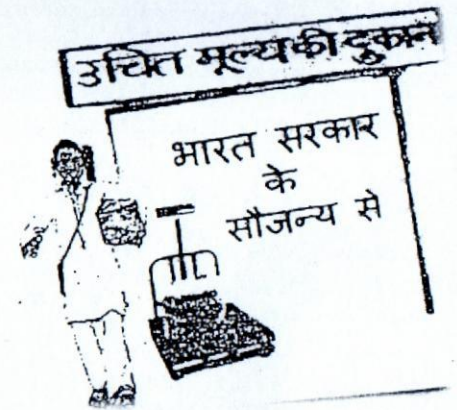 उचित मूल्य की दुकान
भारत सरकार
के
सौजन्य से